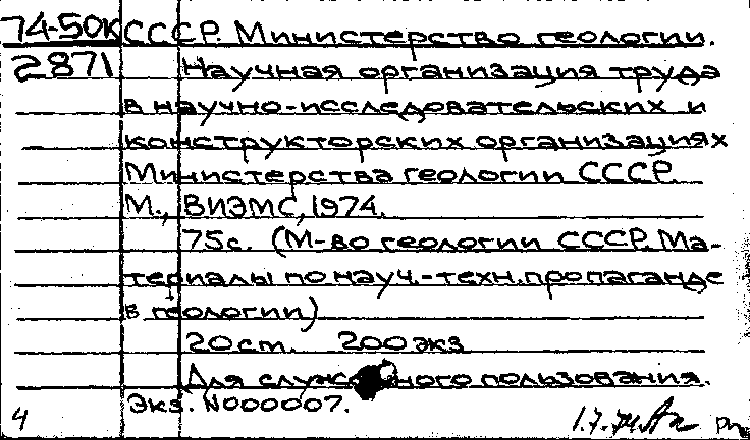 74-50К СССР. Министерство геологии.
2871 Научная организация труда
в научно-исследовательских и
конструкторских организациях
Министерства геологии СССР.
М., ВИЭМС, 1974.
75с. (М-во геологии СССР. Ма-
териалы по науч.-техн. пропаганде
в геологии)
20 ст. 200 экз
Для служебного пользования.
Экз. N000007.
4 1.7.74